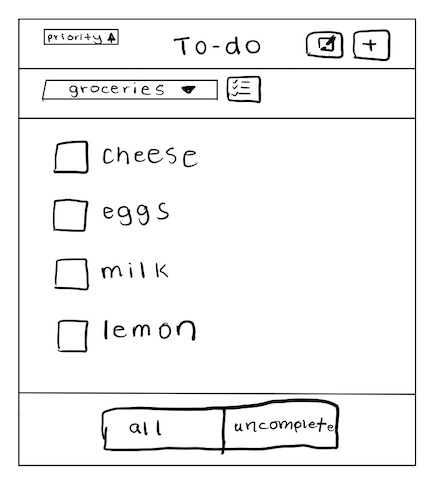 priority
To-do
+
groceries
cheese
eggs
milk
lemon
all
uncomplete